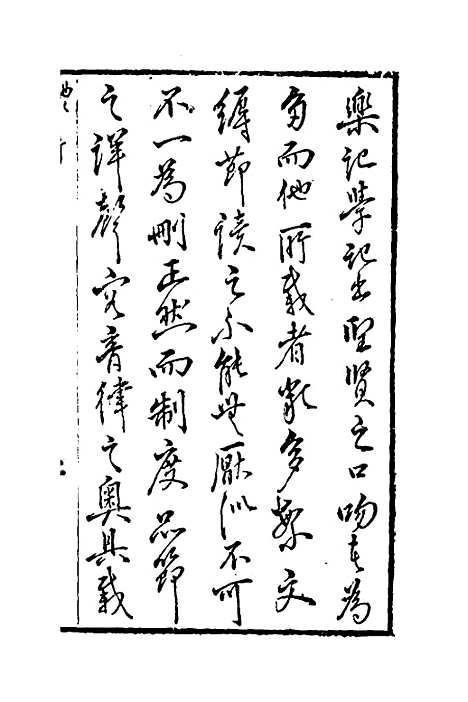 樂記學記出聖賢之口吻者為
多而他所載者類多繁文
縟節讀之不能無厭似不可
不一為刪正然而制度品節
之詳聲容音律之奧具載